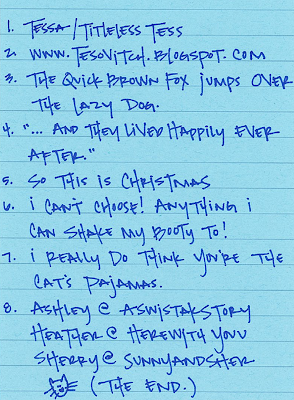 1. TESSA/TITLELESS TESS
2. WWW.TESOVITCH.BLOGSPOT.COM
3. THE QUICK BROWN FOX JUMPS OVER
THE LAZY DOG.
4. "... AND THEY LIVED HAPPILY EVER
AFTER."
5. SO THIS IS CHRISTMAS
6. i CAN'T CHOOSE! ANYTHING i
CAN SHAKE MY BOOTY TO!
7. i REALLY DO THINK YOU'RE THE
CAT'S PAJAMAS.
8. ASHLEY @ ASWISTAKSTORY
HEATHER @ HEREWITH YOUU
SHERRY @ SUNNYANDSHER
(THE END.)